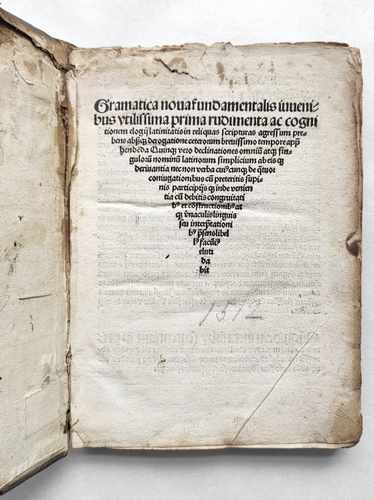 Gramatica noua fundamentalis iuueni⸗
bus vtilissima prima rudimenta ac cogni
tionem elogij latinitatis in reliquas scripturas agressum pre
bens absq̃ derogatione ceterorum breuissimo tempore app̃
hendẽda Quinqʒ vero declinationes omniũ atqʒ sin
guloꝝ nominũ latinorum simplicium ab eis qʒ
deriuantia nec non verba cuiꝰcunqʒ de q̃tuor
coniugationibus cũ preteritis supi⸗
nis participijs qʒ inde venien
tia cũ debitis congruitati
bꝰ et cõstructionibꝰ at
qʒ v̉naculis linguis
seu interp̃tationi
bꝰ p̃sens libel
lꝰ facilie
eluci
da
bit
1512